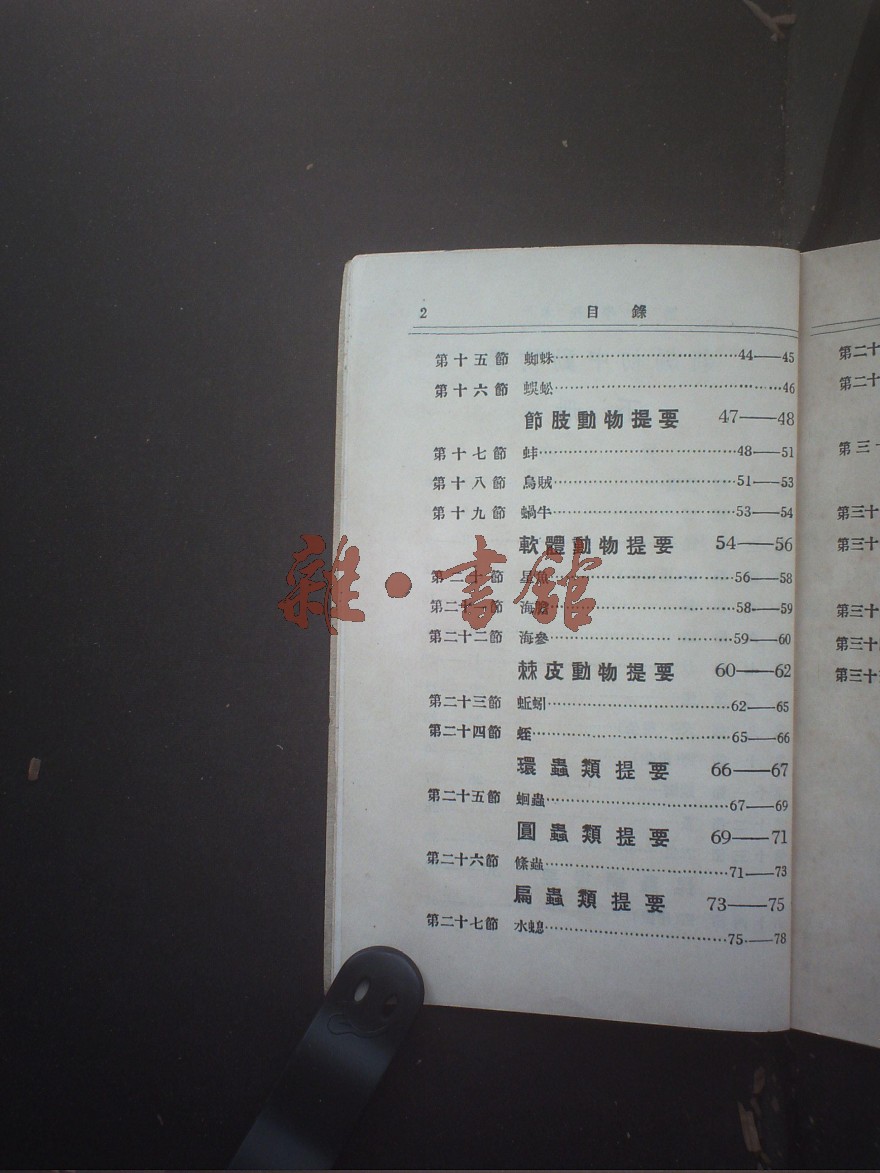 2 目錄
第十五節 蜘蛛…………44——45
第十六節 蜈蚣…………46
節肢動物提要 47——48
第十七節 蚌…………48——51
第十八節 烏賊…………51——53
第十九節 蝸牛…………53——54
軟體動物提要 54——56
第二十節 星魚…………56——58
第二十一節 海膽…………58——59
第二十二節 海參…………59——60
棘皮動物提要 60——62
第二十三節 蚯蚓…………62——65
第二十四節 蛭…………65——66
環蟲類提要 66——67
第二十五節 蛔蟲…………67——69
圓蟲類提要 69——71
第二十六節 絛蟲…………71——73
扁蟲類提要 73——75
第二十七節 水螅…………75——78
雜·書館
第二十
第二十
第三十
第三十
第三十
第三十
第三十
第三十